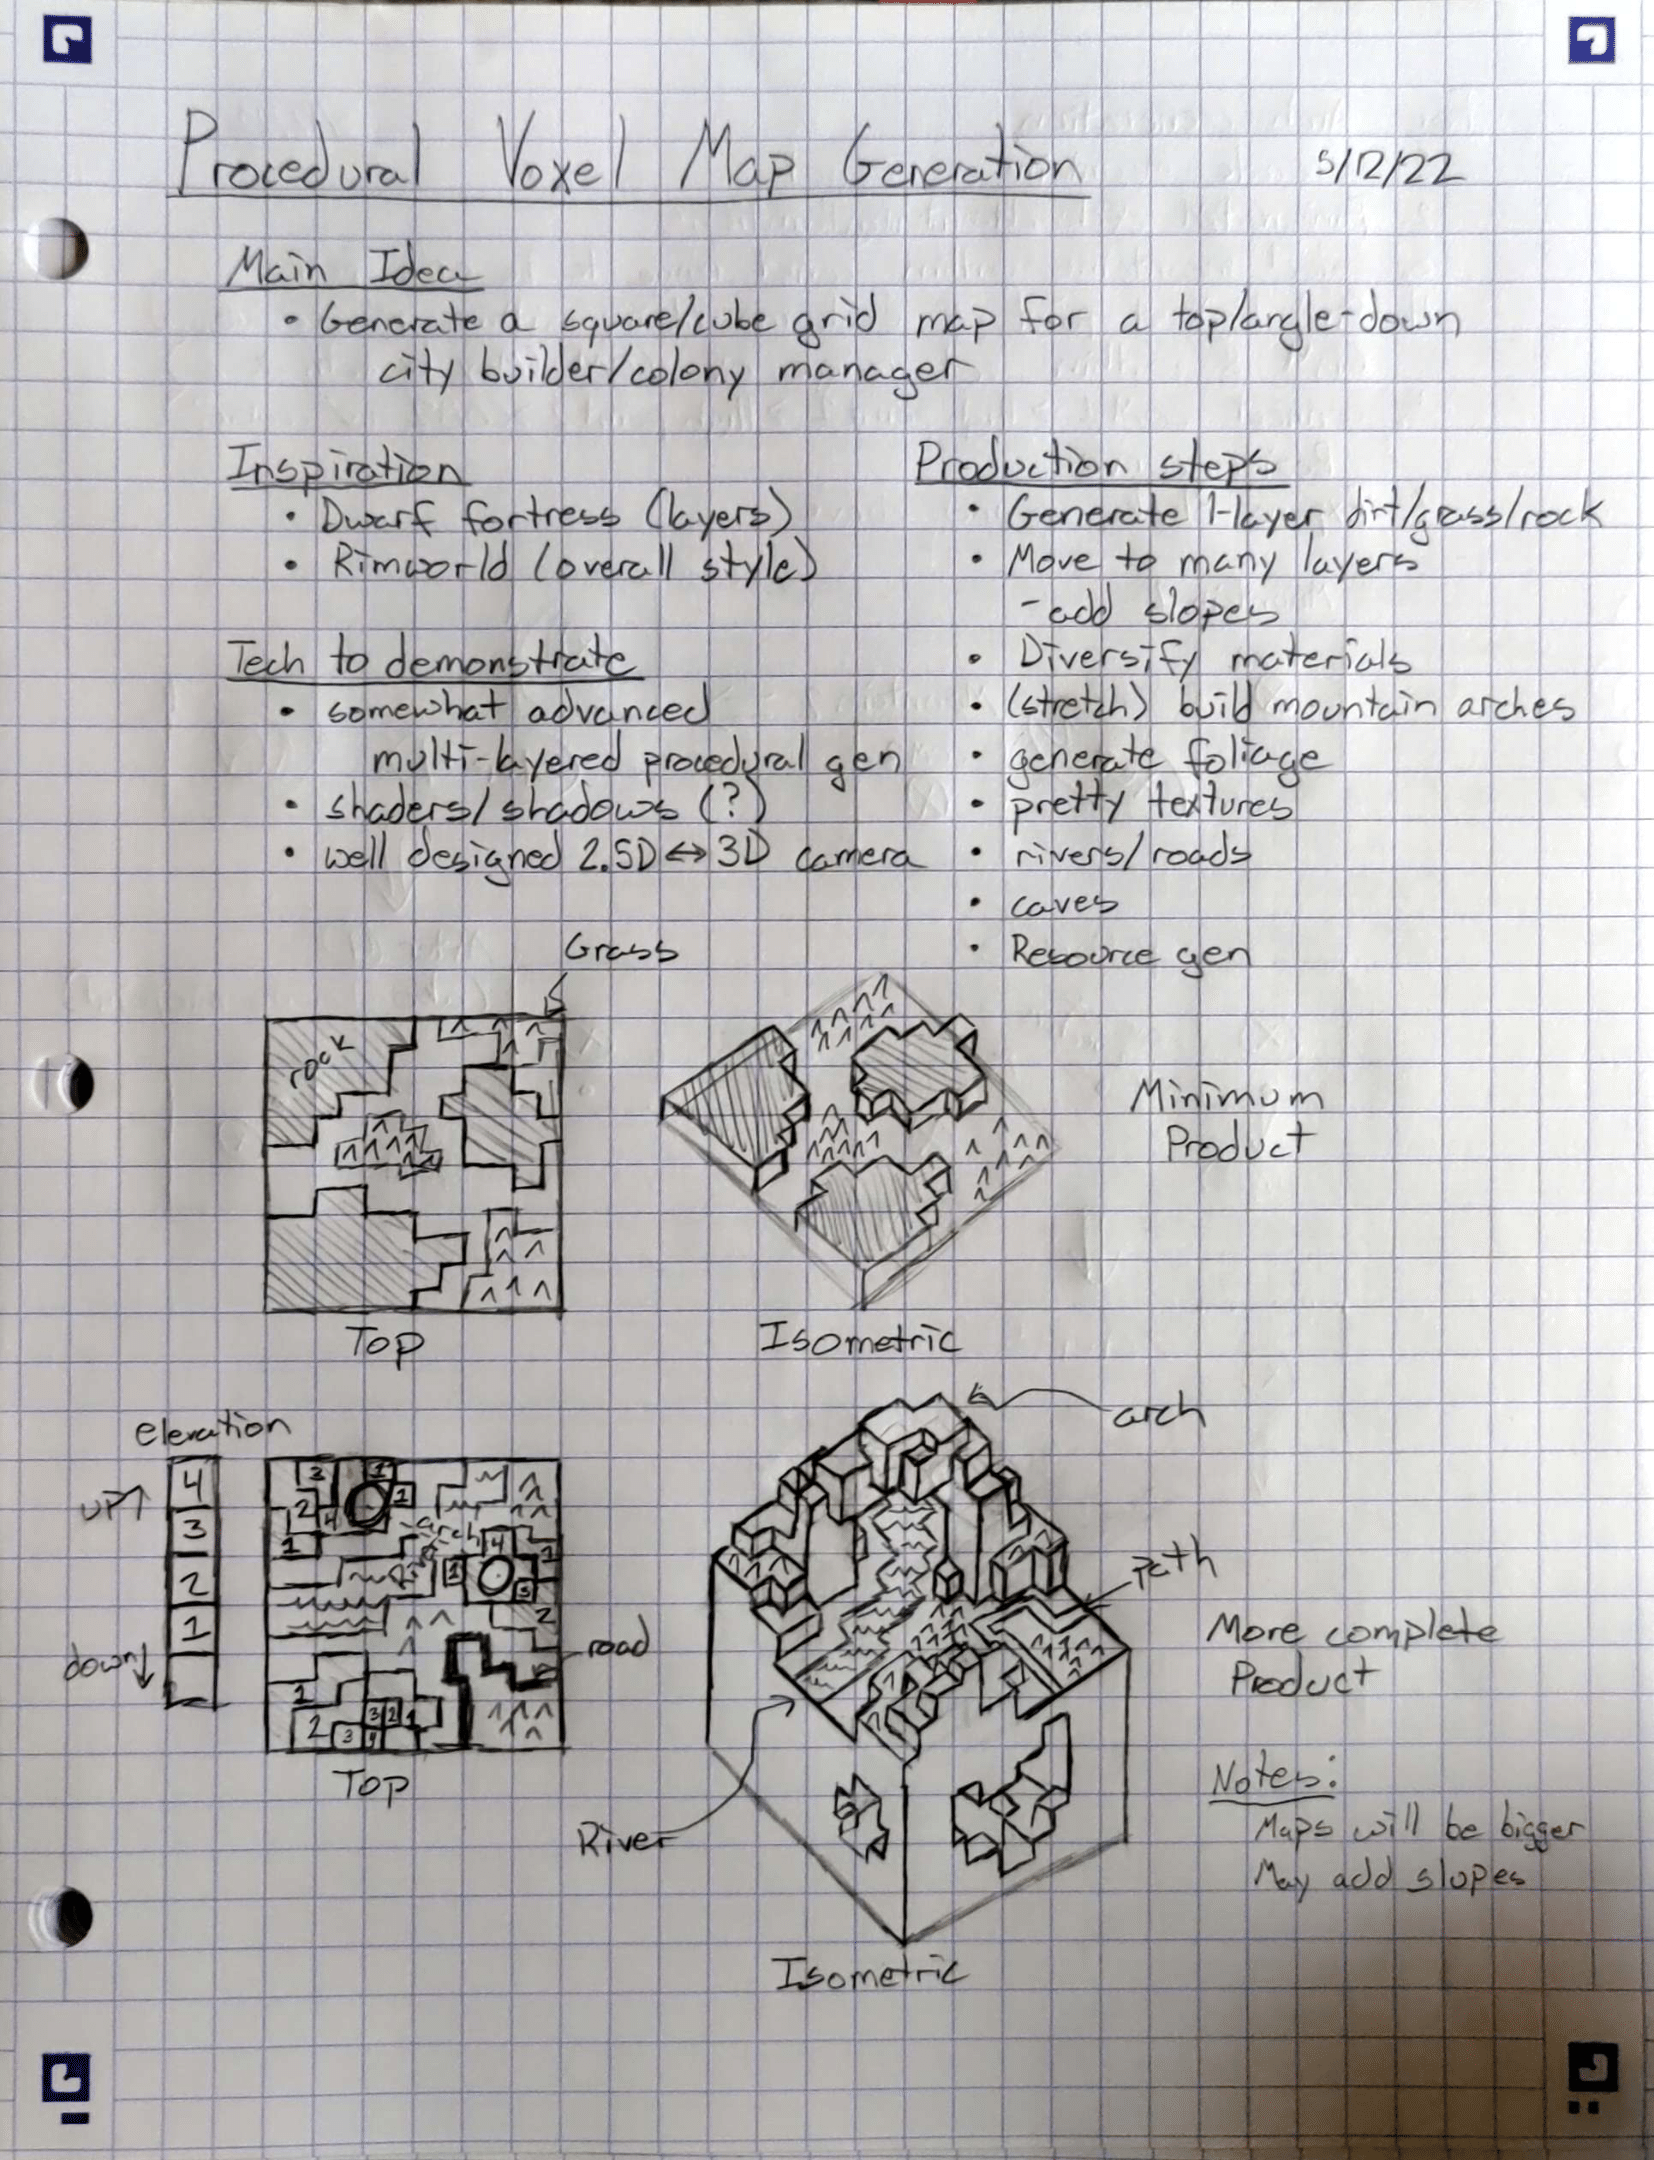 Procedural Voxel Map Generation
5/12/22
Main Idea
• Generate a square/cube grid map for a top/angle-down
city builder/colony manager
Inspiration
• Dwarf fortress (layers)
• Rimworld (overall style)
Tech to demonstrate
• somewhat advanced
multi-layered procedural gen
• shaders/shadows (?)
• well designed 2.5D ↔ 3D camera
Production steps
• Generate 1-layer dirt/grass/rock
• Move to many layers
- add slopes
• Diversify materials
• (stretch) build mountain arches
• generate foliage
• pretty textures
• rivers/roads
• caves
• Resource gen
Grass
rock
Top
Isometric
Minimum
Product
elevation
up↑
4
3
2
1
down↓
3 1
2 4 1
1
arch
4 1
1 3
2
1
2 3
3 2 1
road
Top
arch
path
River
Isometric
More complete
Product
Notes:
Maps will be bigger
May add slopes